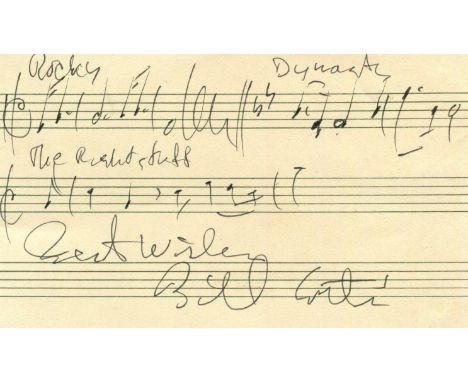 Rocky Dynasty
The Right Stuff
Best Wishes
Bill Conti